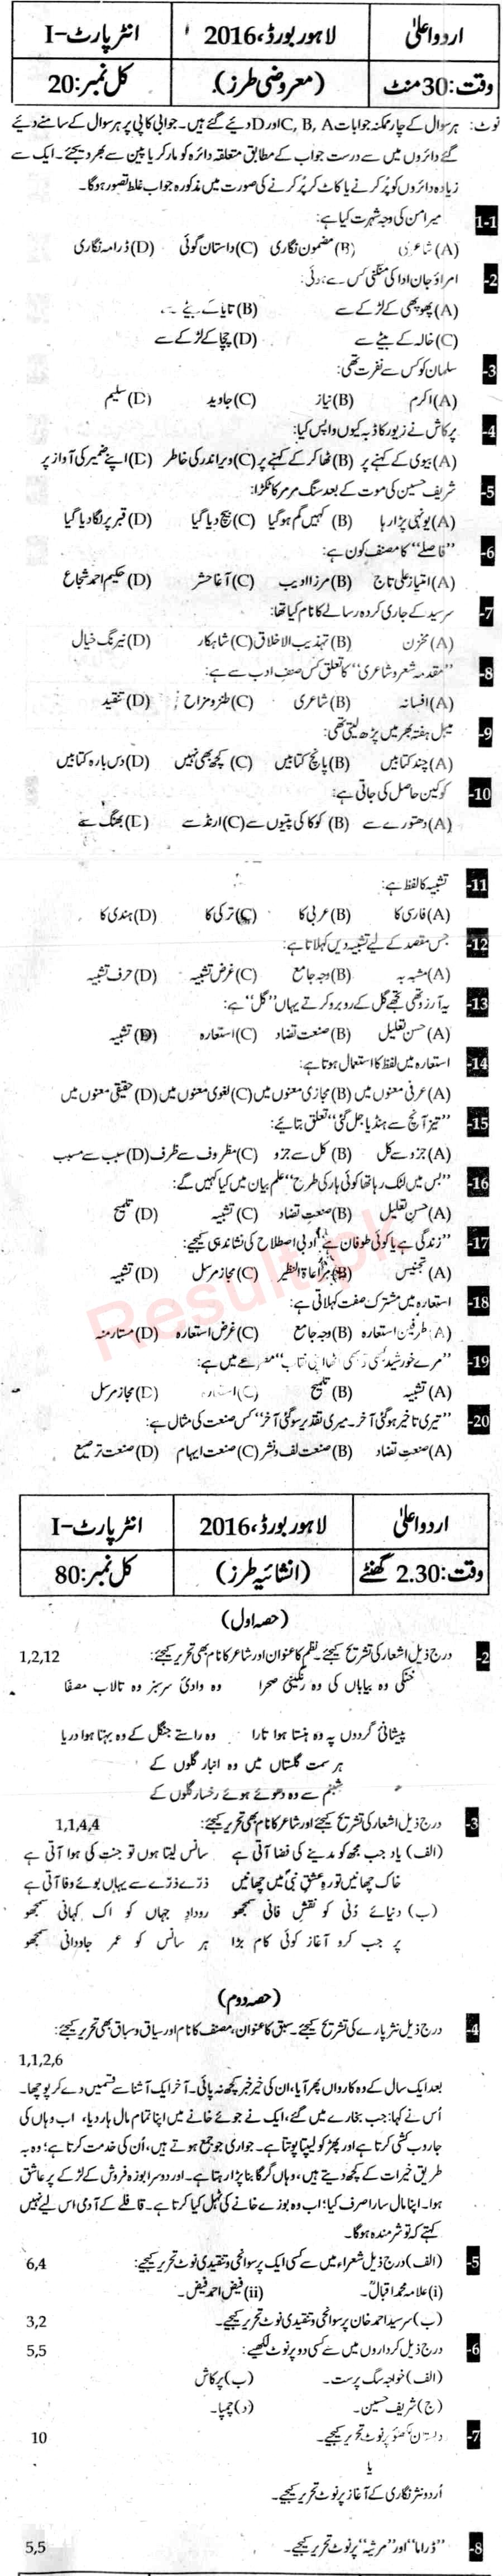 اردو اعلیٰ لاہور بورڈ، 2016 انٹر پارٹ-I
وقت: 30 منٹ (معروضی طرز) کل نمبر: 20
نوٹ: ہر سوال کے چار ممکنہ جوابات C, B, A اور D دیئے گئے ہیں۔ جوابی کاپی پر ہر سوال کے سامنے دیئے
گئے دائروں میں سے درست جواب کے مطابق متعلقہ دائرہ کو مارکر یا پین سے بھر دیجئے۔ ایک سے
زیادہ دائروں کو پُر کرنے یا کاٹ کر پُر کرنے کی صورت میں مذکورہ جواب غلط تصور ہوگا۔
1-1 میر امن کی وجہ شہرت کیا ہے:
(A) شاعری (B) مضمون نگاری (C) داستان گوئی (D) ڈرامہ نگاری
-2 امراؤ جان ادا کی منگنی کس سے ہوئی:
(A) پھوپھی کے لڑکے سے (B) تایا کے بیٹے سے
(C) خالہ کے بیٹے سے (D) چچا کے لڑکے سے
-3 سلمان کو کس سے نفرت تھی:
(A) اکرم (B) نیاز (C) جاوید (D) سلیم
-4 پرکاش نے زیور کا ڈبہ کیوں واپس کیا:
(A) بیوی کے کہنے پر (B) ٹھاکر کے کہنے پر (C) ویراندر کی خاطر (D) اپنے ضمیر کی آواز پر
-5 شریف حسین کی موت کے بعد سنگ مرمر کا ٹکڑا:
(A) یونہی پڑا رہا (B) کہیں گم ہوگیا (C) بیچ دیا گیا (D) قبر پر لگا دیا گیا
-6 "فاصلے" کا مصنف کون ہے:
(A) امتیاز علی تاج (B) مرزا ادیب (C) آغا حشر (D) حکیم احمد شجاع
-7 سرسید کے جاری کردہ رسالے کا نام کیا تھا:
(A) مخزن (B) تہذیب الاخلاق (C) شاہکار (D) نیرنگ خیال
-8 "مقدمہ شعر و شاعری" کا تعلق کس صنف ادب سے ہے:
(A) افسانہ (B) شاعری (C) طنز و مزاح (D) تنقید
-9 میبل ہفتہ بھر میں پڑھ لیتی تھی:
(A) چند کتابیں (B) پانچ کتابیں (C) کچھ بھی نہیں (D) دس بارہ کتابیں
-10 کوکین حاصل کی جاتی ہے:
(A) دھتورے سے (B) کوکا کی پتیوں سے (C) ارنڈ سے (D) بھنگ سے
-11 تشبیہ کا لفظ ہے:
(A) فارسی کا (B) عربی کا (C) ترکی کا (D) ہندی کا
-12 جس مقصد کے لیے تشبیہ دیں کہلاتا ہے:
(A) مشبہ بہ (B) وجہ جامع (C) غرض تشبیہ (D) حرف تشبیہ
-13 یہ آرزو تھی تجھے گل کے روبرو کرتے یہاں "گل" ہے:
(A) حسن تعلیل (B) صنعت تضاد (C) استعارہ (D) تشبیہ
-14 استعارہ میں لفظ کا استعمال ہوتا ہے:
(A) عرفی معنوں میں (B) مجازی معنوں میں (C) لغوی معنوں میں (D) حقیقی معنوں میں
-15 "تیز آنچ سے ہنڈیا جل گئی" تعلق بتائیے:
(A) جزو سے کل (B) کل سے جزو (C) مظروف سے ظرف (D) سبب سے مسبب
-16 "بس میں لٹک رہا تھا کوئی ہار کی طرح" علم بیان میں کیا کہیں گے:
(A) حسن تعلیل (B) صنعت تضاد (C) تشبیہ (D) تلمیح
-17 "زندگی ہے یا کوئی طوفان ہے" ادبی اصطلاح کی نشاندہی کیجیے:
(A) تجنیس (B) مراعاۃ النظیر (C) مجاز مرسل (D) تشبیہ
-18 استعارہ میں مشترک صفت کہلاتی ہے:
(A) طرفین استعارہ (B) وجہ جامع (C) غرض استعارہ (D) مستعار منہ
-19 "مرے خورشید کبھی تو بھی اٹھا اپنی نقاب" مصرعے میں ہے:
(A) تشبیہ (B) تلمیح (C) استعارہ (D) مجاز مرسل
-20 "تیری تاخیر ہوگئی آخر۔ میری تقدیر سوگئی آخر" کس صنعت کی مثال ہے:
(A) صنعت تضاد (B) صنعت لف و نشر (C) صنعت ایہام (D) صنعت ترصیع
Result.pk
اردو اعلیٰ لاہور بورڈ، 2016 انٹر پارٹ-I
وقت: 2.30 گھنٹے (انشائیہ طرز) کل نمبر: 80
(حصہ اول)
-2 درج ذیل اشعار کی تشریح کیجئے۔ نظم کا عنوان اور شاعر کا نام بھی تحریر کیجئے: 1,2,12
خنکی وہ بیاباں کی وہ رنگینیٔ صحرا وہ وادیٔ سرسبز وہ تالاب مصفا
پیشانیٔ گردوں پہ وہ ہنستا ہوا تارا وہ راستے جنگل کے وہ بہتا ہوا دریا
ہر سمت گلستاں میں وہ انبار گلوں کے
شبنم سے وہ دھوئے ہوئے رخسار گلوں کے
-3 درج ذیل اشعار کی تشریح کیجئے اور شاعر کا نام بھی تحریر کیجئے: 1,1,4,4
(الف) یاد جب مجھ کو مدینے کی فضا آتی ہے سانس لیتا ہوں تو جنت کی ہوا آتی ہے
خاک چھانیں تو رہِ عشقِ نبیؐ میں چھانیں ذرّے ذرّے سے یہاں بوئے وفا آتی ہے
(ب) دنیائے دَنی کو نقشِ فانی سمجھو رودادِ جہاں کو اک کہانی سمجھو
پر جب کرو آغاز کوئی کام بڑا ہر سانس کو عمر جاودانی سمجھو
(حصہ دوم)
-4 درج ذیل نثر پارے کی تشریح کیجئے۔ سبق کا عنوان، مصنف کا نام اور سیاق و سباق بھی تحریر کیجئے:
1,1,2,6
بعد ایک سال کے وہ کارواں پھر آیا، ان کی خیر خبر کچھ نہ پائی۔ آخر ایک آشنا سے قسمیں دے کر پوچھا۔
اُس نے کہا: جب بخارے میں گئے، ایک نے جوئے خانے میں اپنا تمام مال ہار دیا، اب وہاں کی
جاروب کشی کرتا ہے اور پھڑ کو لیپتا پوتتا ہے۔ جواری جو جمع ہوتے ہیں، اُن کی خدمت کرتا ہے؛ وہ بہ
طریق خیرات کے کچھ دیتے ہیں، وہاں گرگا بنا پڑا رہتا ہے۔ اور دوسرا بوزہ فروش کے لڑکے پر عاشق
ہوا۔ اپنا مال سارا صرف کیا؛ اب وہ بوزے خانے کی ٹہل کیا کرتا ہے۔ قافلے کے آدمی اس لیے نہیں
کہتے کہ تو شرمندہ ہوگا۔
-5 (الف) درج ذیل شعراء میں سے کسی ایک پر سوانحی و تنقیدی نوٹ تحریر کیجیے: 6,4
(i) علامہ محمد اقبالؒ۔ (ii) فیض احمد فیض۔
(ب) سرسید احمد خان پر سوانحی و تنقیدی نوٹ تحریر کیجیے۔ 3,2
-6 درج ذیل کرداروں میں سے کسی دو پر نوٹ لکھیے: 5,5
(الف) خواجہ سگ پرست۔ (ب) پرکاش
(ج) شریف حسین۔ (د) چمپا۔
-7 دبستان لکھنؤ پر نوٹ تحریر کیجیے۔ 10
یا
اُردو نثر نگاری کے آغاز پر نوٹ تحریر کیجیے۔
-8 "ڈراما" اور "مرثیہ" پر نوٹ تحریر کیجیے۔ 5,5